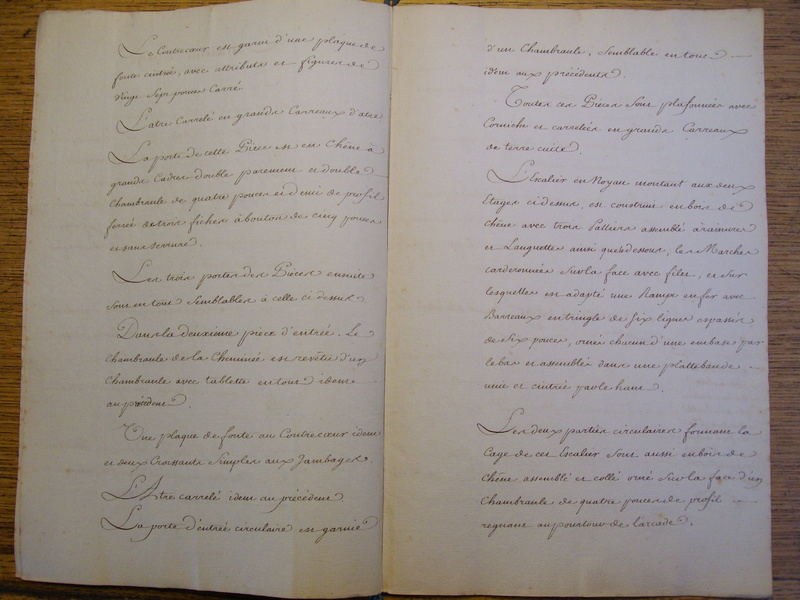 Le Contrecœur est garni d'une plaque de
fonte cintrée, avec attributs et figures de
vingt sept pouces Carré.
L'atre Carrelé en grands Carreaux d'atre
La porte de cette Piece est en Chêne à
grands Cadres double parement et double
Chambranle de quatre pouces et demi de profil
ferrée de trois fiches à bouton de cinq pouces
et sans serrure.
Les trois portes des Pièces ensuite
sont en tout Semblables à celle ci dessus
Dans la deuxieme piece d'entrée. Le
chambranle de la Cheminée est revêtie d'un
Chambranle avec tablette en tout idem
au précédent.
Une plaque de fonte au Contrecœur idem
et deux Croissants Simples aux Jambages.
L'Atre carrelé idem au précédent
La porte d'entrée circulaire est garnie
d'un Chambranle, Semblable en tous
idem aux précédents.
Toutes ces Pieces sont plafonnées avec
Corniche et carrelées en grands Carreaux
de terre cuite.
L'Escalier en Noyau montant aux deux
Etages ci dessus, est construit en bois de
chêne avec trois Palliers assemblé à rainures
et Languettes ainsi que le dessous, les Marches
carderonnées Sur la face avec filet, et sur
lesquelles est adapté une Rampe en fer avec
Barreaux en tringle de Six lignes espassés
de Six pouces, ornée chacun d'une embase par
le bas et assemblée dans une plattebande
unie et cintrée par le haut.
Les deux parties circulaires formant la
Cage de cet Escalier sont aussi en bois de
chêne assemblé et collé orné Sur la face d'un
Chambranle de quatre pouces de profil
regnant au pourtour de l'arcade.